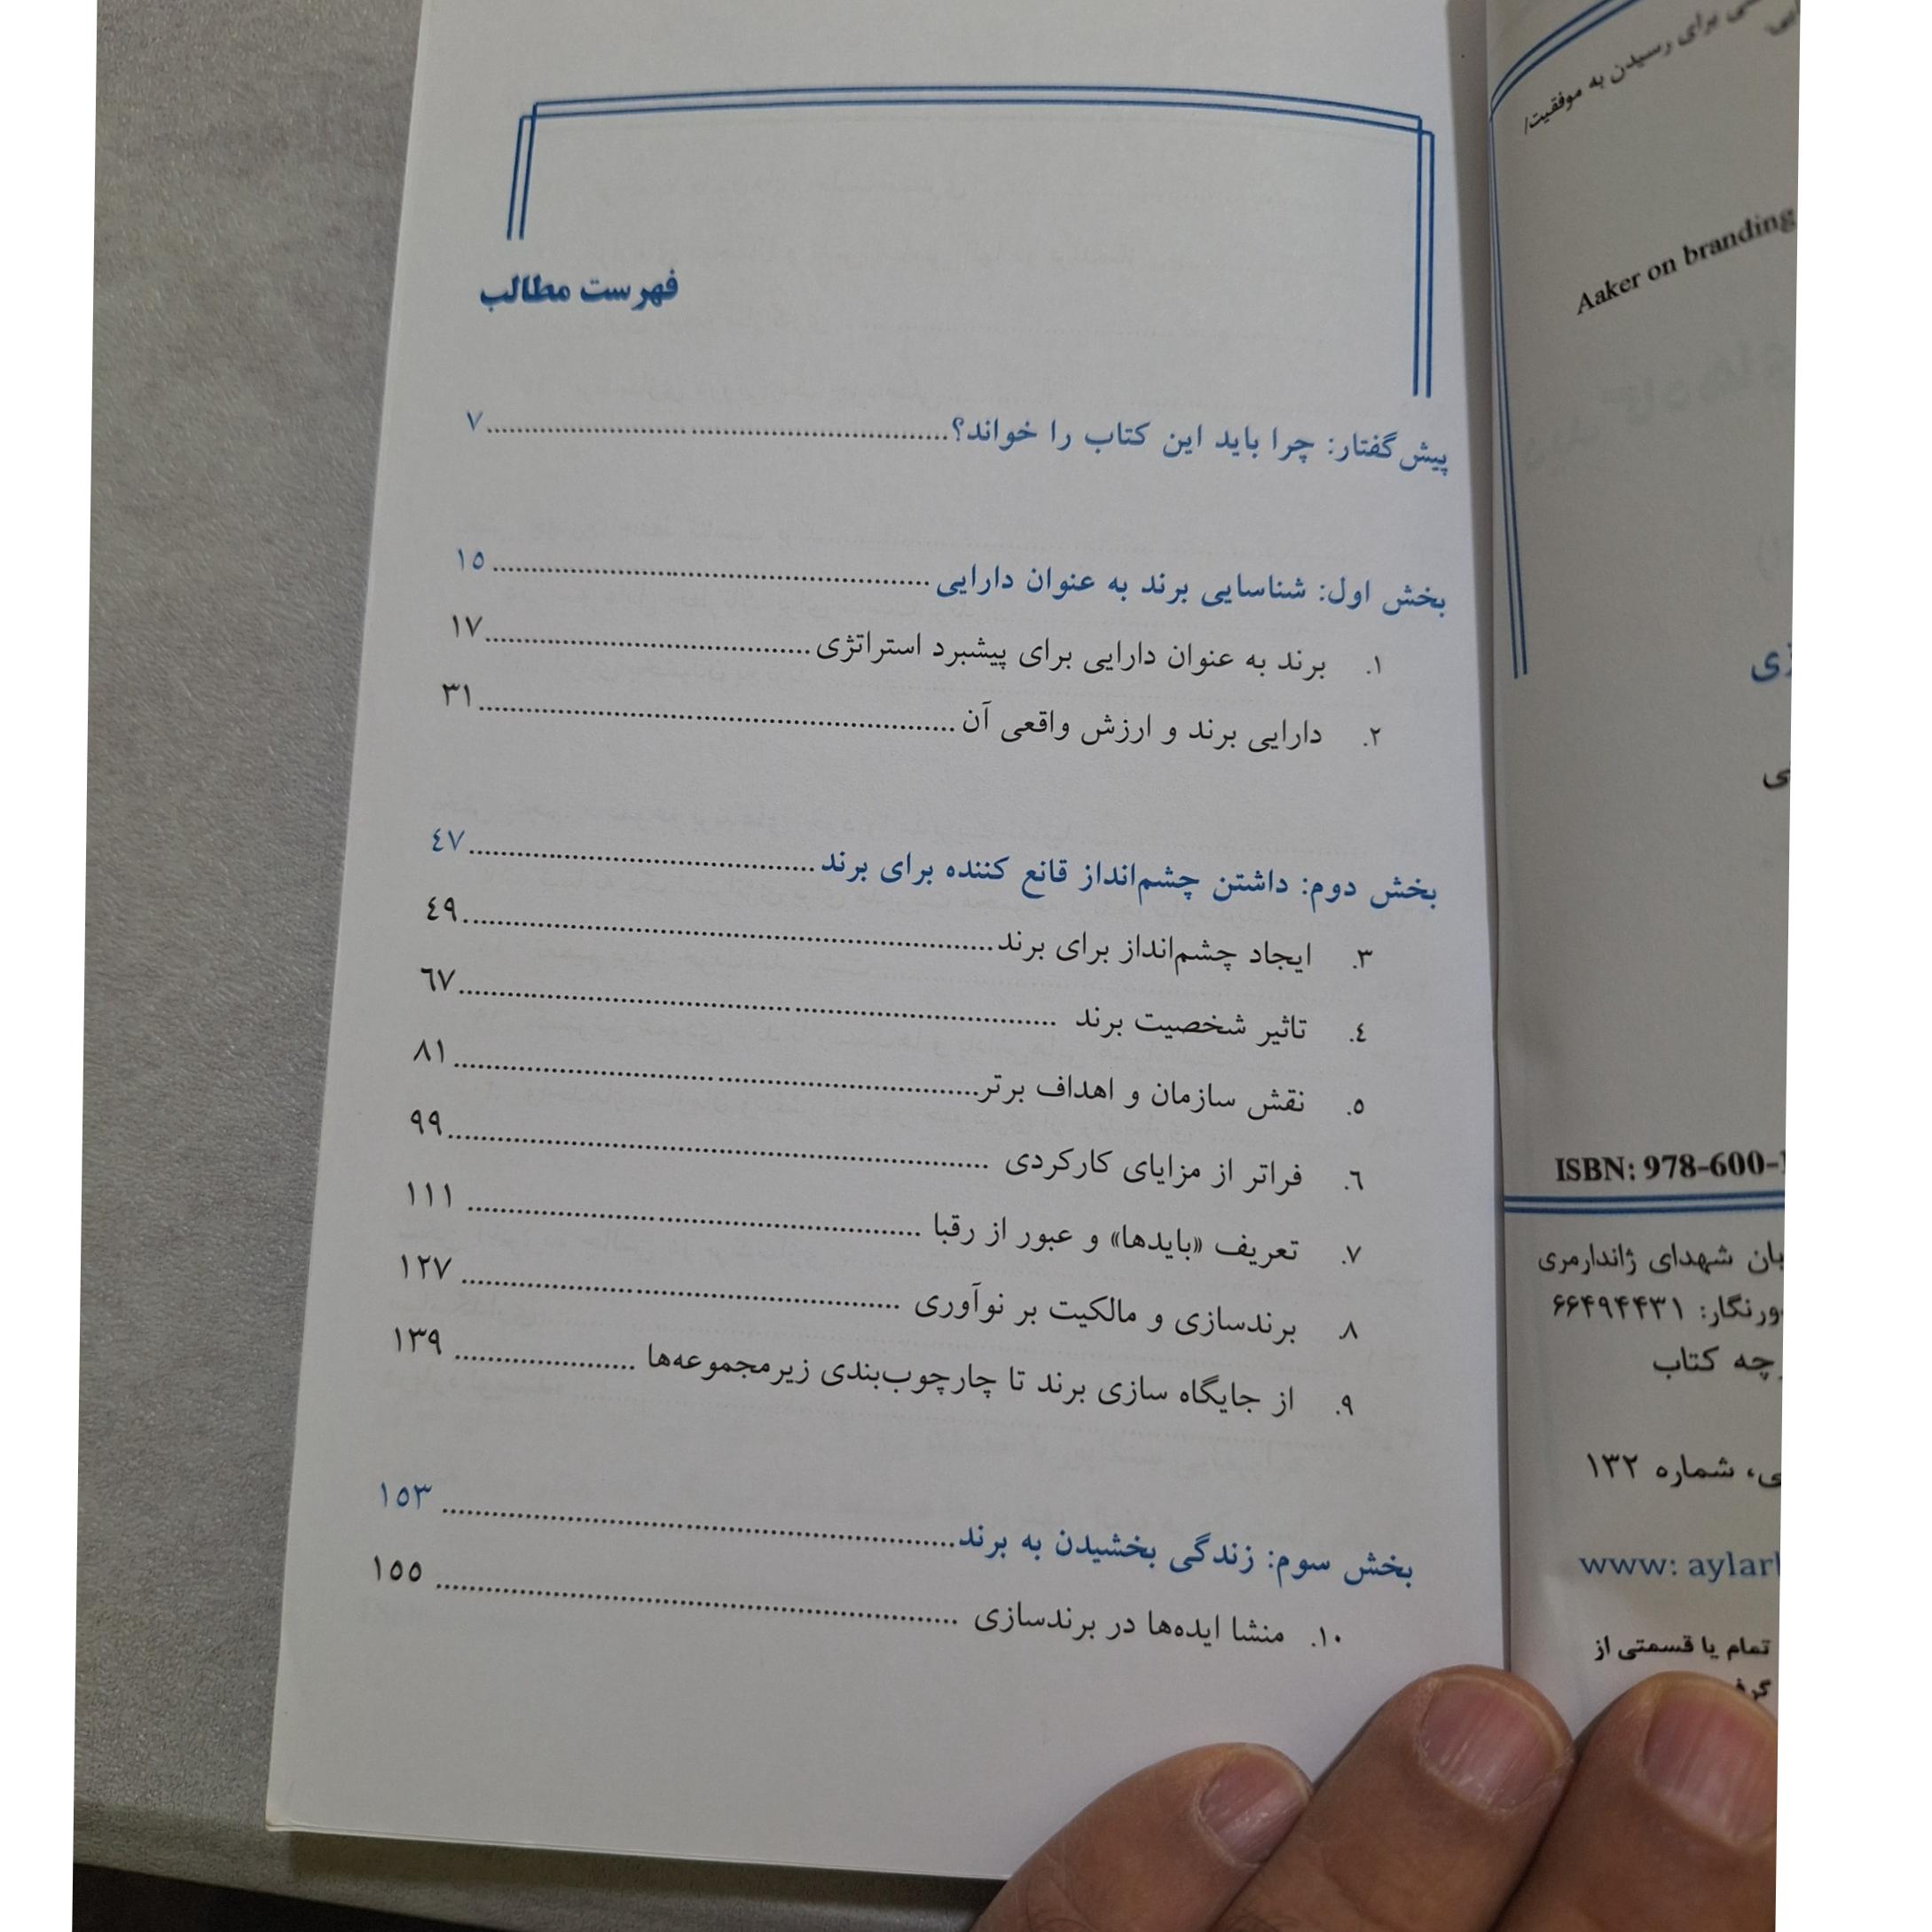 فهرست مطالب
پیش‌گفتار: چرا باید این کتاب را خواند؟ ........ ٧
بخش اول: شناسایی برند به عنوان دارایی ........ ١٥
١. برند به عنوان دارایی برای پیشبرد استراتژی ........ ١٧
٢. دارایی برند و ارزش واقعی آن ........ ٣١
بخش دوم: داشتن چشم‌انداز قانع کننده برای برند ........ ٤٧
٣. ایجاد چشم‌انداز برای برند ........ ٤٩
٤. تاثیر شخصیت برند ........ ٦٧
٥. نقش سازمان و اهداف برتر ........ ٨١
٦. فراتر از مزایای کارکردی ........ ٩٩
٧. تعریف «بایدها» و عبور از رقبا ........ ١١١
٨. برندسازی و مالکیت بر نوآوری ........ ١٢٧
٩. از جایگاه سازی برند تا چارچوب‌بندی زیرمجموعه‌ها ........ ١٣٩
بخش سوم: زندگی بخشیدن به برند ........ ١٥٣
١٠. منشا ایده‌ها در برندسازی ........ ١٥٥
برای رسیدن به موفقیت/
Aaker on branding
ISBN: 978-600-
شهدای ژاندارمری
۶۶۴۹۴۴۳۱
کتاب
شماره ۱۳۲
www: aylar
تمام یا قسمتی از